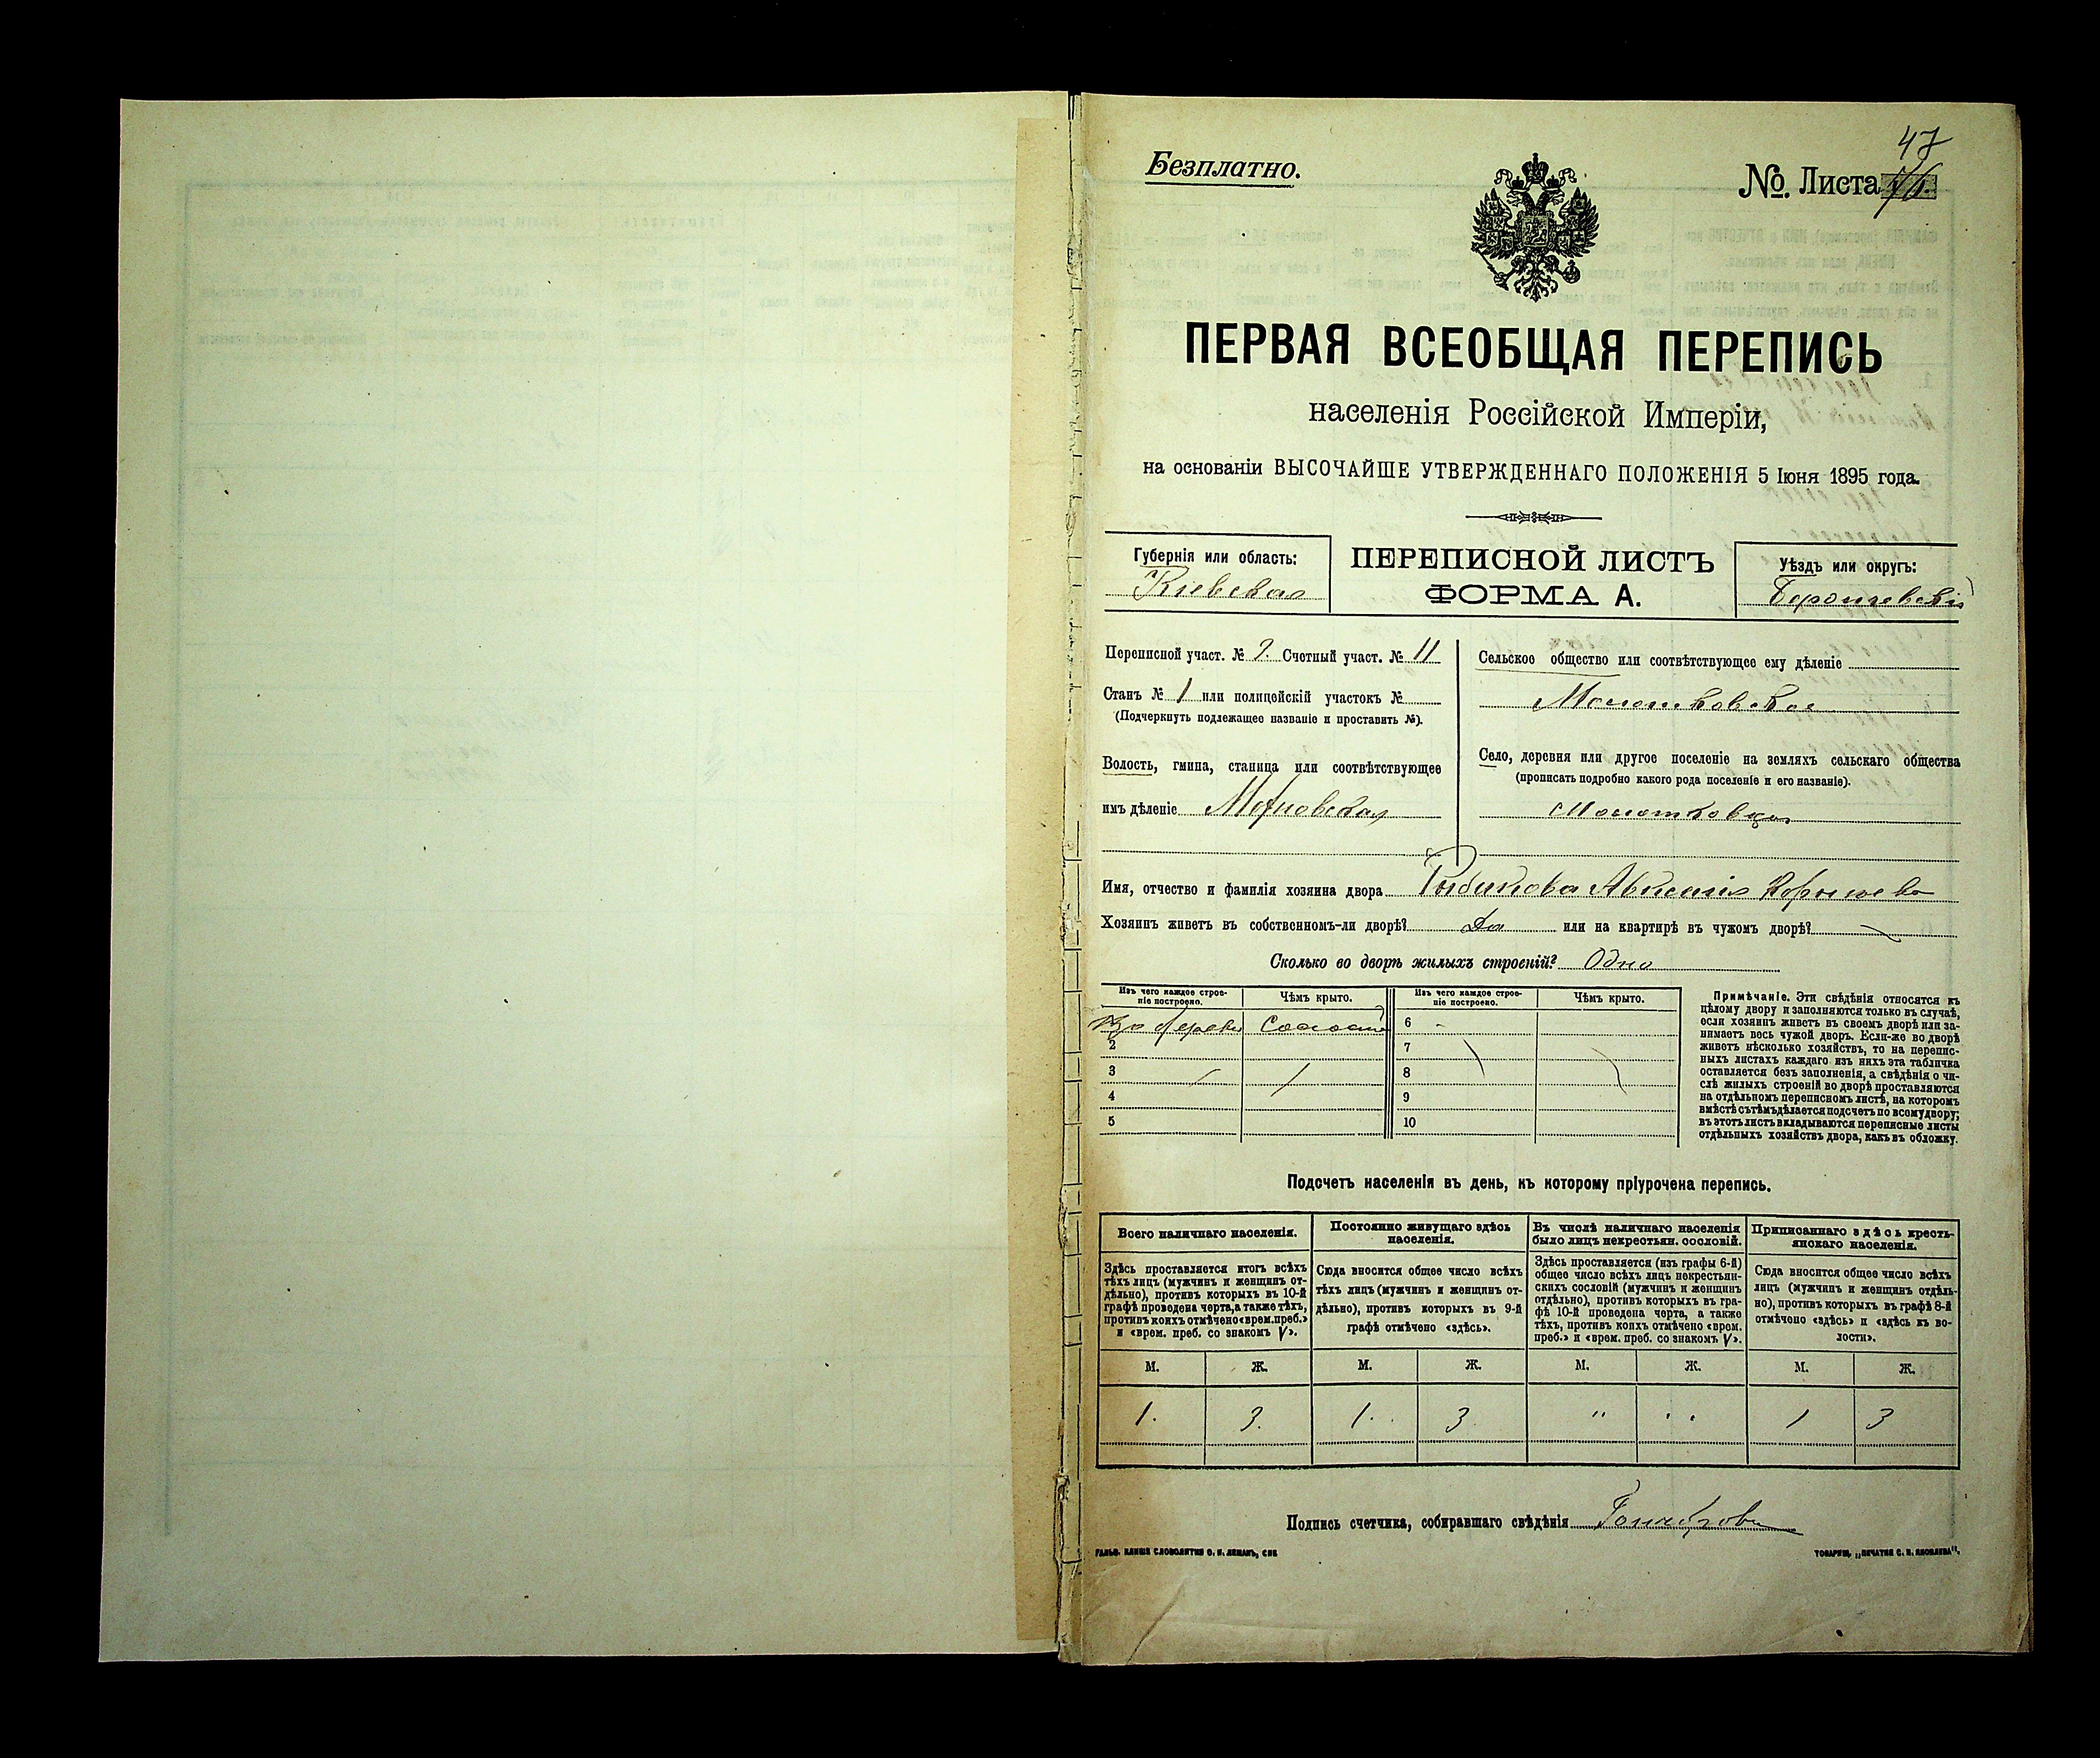 47
Безплатно.
№. Листа
ПЕРВАЯ ВСЕОБЩАЯ ПЕРЕПИСЬ
населенія Россійской Имперіи,
на основаніи ВЫСОЧАЙШЕ УТВЕРЖДЕННАГО ПОЛОЖЕНІЯ 5 Іюня 1895 года.
Губернія или область:
Кіевская
ПЕРЕПИСНОЙ ЛИСТЪ
ФОРМА А.
Уѣздъ или округъ:
Бердичевскій
Переписной участ. № 9. Счетный участ. № 11
Станъ № 1 или полицейскій участокъ №
(Подчеркнуть подлежащее названіе и проставить №).
Волость, гмина, станица или соотвѣтствующее
имъ дѣленіе Махновская
Сельское общество или соотвѣтствующее ему дѣленіе
Молотковское
Село, деревня или другое поселеніе на земляхъ сельскаго общества
(прописать подробно какого рода поселеніе и его названіе).
Молотковцы
Имя, отчество и фамилія хозяина двора
Хозяинъ живетъ въ собственномъ-ли дворѣ? Да или на квартирѣ въ чужомъ дворѣ?
Сколько во дворѣ жилыхъ строеній? Одно
Изъ чего каждое строе-
ніе построено.
Чѣмъ крыто.
Изъ чего каждое строе-
ніе построено.
Чѣмъ крыто.
Изъ дерева Соломой
2
3
4
5
6
7
8
9
10
Примѣчаніе. Эти свѣдѣнія относятся къ
цѣлому двору и заполняются только въ случаѣ,
если хозяинъ живетъ въ своемъ дворѣ или за-
нимаетъ весь чужой дворъ. Если-же во дворѣ
живетъ нѣсколько хозяйствъ, то на перепис-
ныхъ листахъ каждаго изъ нихъ эта табличка
оставляется безъ заполненія, а свѣдѣнія о чи-
слѣ жилыхъ строеній во дворѣ проставляются
на отдѣльномъ переписномъ листѣ, на которомъ
вмѣстѣ съ тѣмъ дѣлается подсчетъ по всему двору;
въ этотъ листъ вкладываются переписные листы
отдѣльныхъ хозяйствъ двора, какъ въ обложку.
Подсчетъ населенія въ день, къ которому пріурочена перепись.
Всего наличнаго населенія.
Здѣсь проставляется итогъ всѣхъ
тѣхъ лицъ (мужчинъ и женщинъ от-
дѣльно), противъ которыхъ въ 10-й
графѣ проведена черта, а также тѣхъ,
противъ коихъ отмѣчено «врем. преб.»
и «врем. преб. со знакомъ V».
Постоянно живущаго здѣсь
населенія.
Сюда вносится общее число всѣхъ
тѣхъ лицъ (мужчинъ и женщинъ от-
дѣльно), противъ которыхъ въ 9-й
графѣ отмѣчено «здѣсь».
Въ числѣ наличнаго населенія
было лицъ некрестьян. сословій.
Здѣсь проставляется (изъ графы 6-й)
общее число всѣхъ лицъ некрестьян-
скихъ сословій (мужчинъ и женщинъ
отдѣльно), противъ которыхъ въ гра-
фѣ 10-й проведена черта, а также
тѣхъ, противъ коихъ отмѣчено «врем.
преб.» и «врем. преб. со знакомъ V».
Приписаннаго здѣсь кресть-
янскаго населенія.
Сюда вносится общее число всѣхъ
лицъ (мужчинъ и женщинъ отдѣль-
но), противъ которыхъ въ графѣ 8-й
отмѣчено «здѣсь» и «здѣсь къ во-
лости».
М. Ж. М. Ж. М. Ж. М. Ж.
1. 3. 1. 3 " " 1 3
Подпись счетчика, собиравшаго свѣдѣнія
ГАЛЬВ. КЛИШЕ СЛОВОЛИТНИ О. И. ЛЕМАНЪ, СПБ
ТОВАРИЩ. „ПЕЧАТНЯ С. П. ЯКОВЛЕВА".